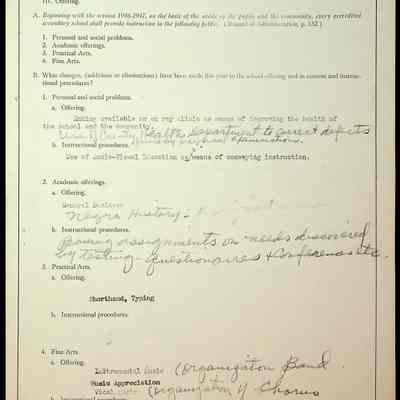 III. Offering.
A. Beginning with the session 1946-1947, on the basis of the needs of the pupils and the community, every accredited
secondary school shall provide instruction in the following fields. (Manual of Administration, p. 132.)
1. Personal and social problems.
2. Academic offerings.
3. Practical Arts.
4. Fine Arts.
B. What changes, (additions or eliminations) have been made this year in the school offering and in content and instruc-
tional procedures?
1. Personal and social problems.
a. Offering.
Making available an ray clinic as means of improving the health of
the school and the community.
Health Department to correct defects
b. Instructional procedures. examinations.
Use of Audio-Visual Education as means of conveying instruction.
2. Academic offerings.
a. Offering.
General Business
Negro History -
b. Instructional procedures.
assignments on needs discovered
by testing - questionaires + conferences etc.
3. Practical Arts.
a. Offering.
Shorthand, Typing
b. Instructional procedures.
4. Fine Arts.
a. Offering.
Instrumental Music (Organization Band
Music Appreciation
Vocal (Organization of Chorus
b. Instructional procedures.